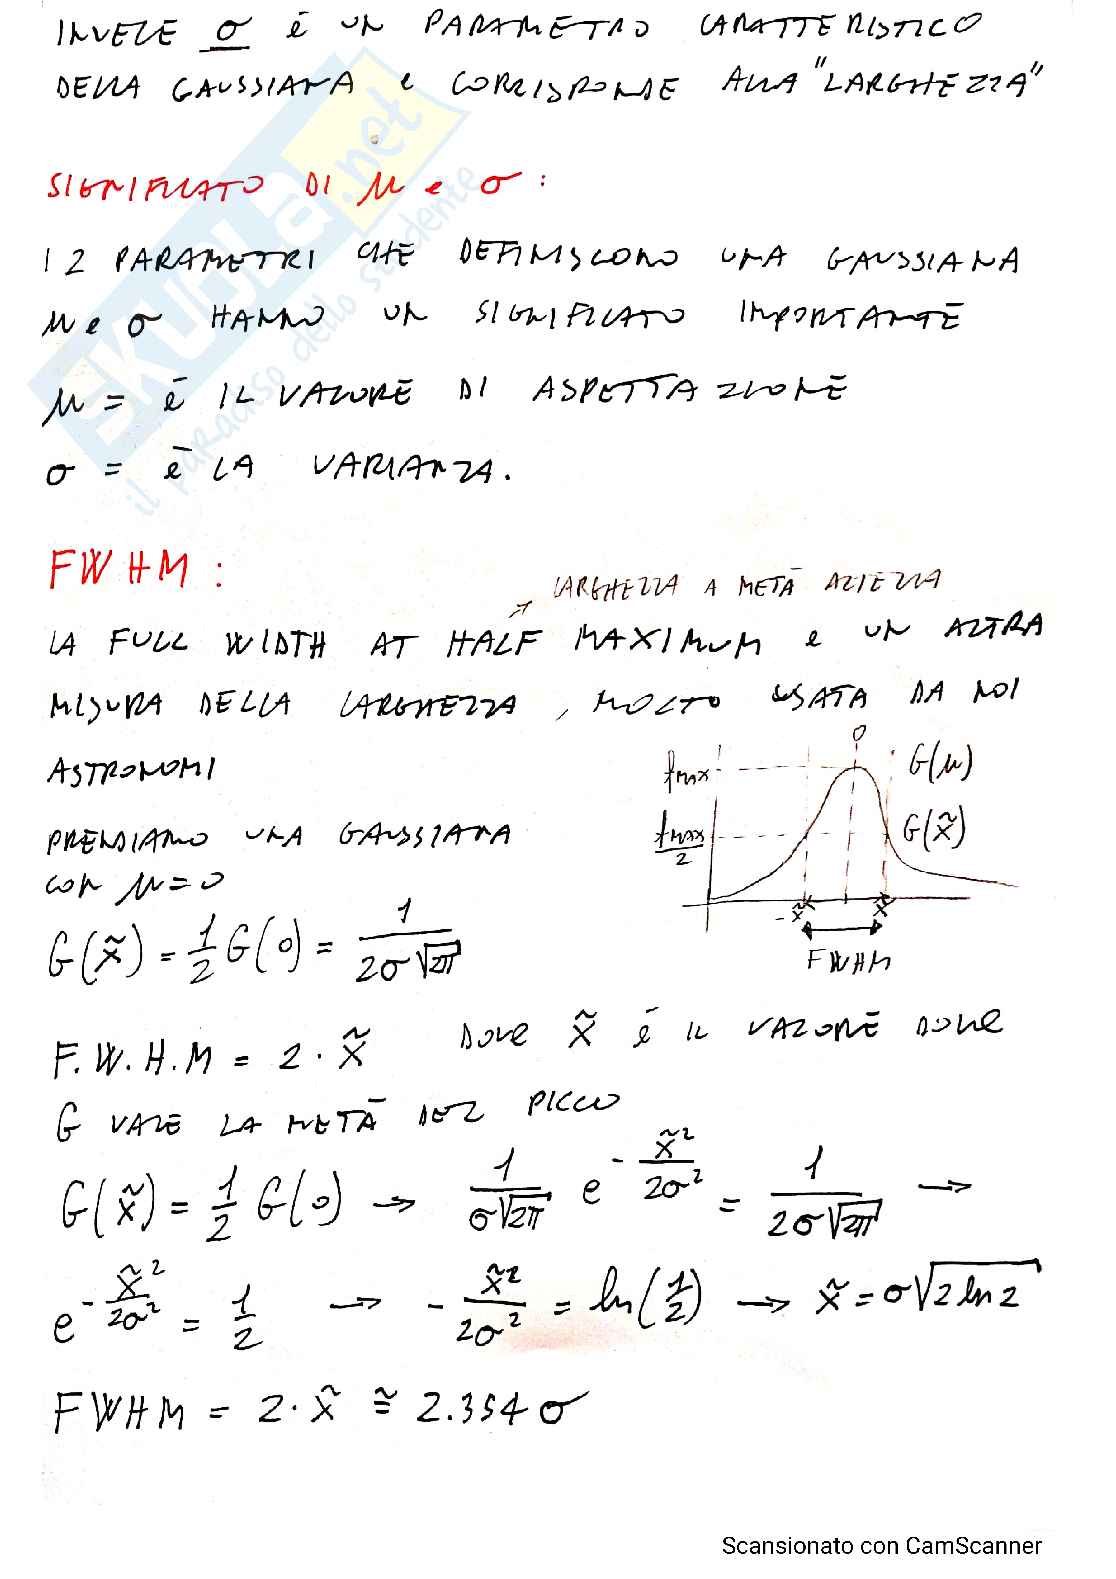 INVECE σ È UN PARAMETRO CARATTERISTICO
DELLA GAUSSIANA E CORRISPONDE ALLA "LARGHEZZA"
SIGNIFICATO DI μ e σ :
I 2 PARAMETRI CHE DEFINISCONO UNA GAUSSIANA
μ e σ HANNO UN SIGNIFICATO IMPORTANTE
μ = È IL VALORE DI ASPETTAZIONE
σ = È LA VARIANZA.
FWHM :
↗ LARGHEZZA A METÀ ALTEZZA
LA FULL WIDTH AT HALF MAXIMUM e UN ALTRA
MISURA DELLA LARGHEZZA, MOLTO USATA DA NOI
ASTRONOMI
PRENDIAMO UNA GAUSSIANA
CON μ=0
0
fmax G(μ)
fmax/2 G(x̃)
-x̃ x̃
FWHM
G(x̃) = 1/2 G(0) = 1/(2σ√2π)
F.W.H.M = 2 · x̃ DOVE x̃ È IL VALORE DOVE
G VALE LA METÀ DEL PICCO
G(x̃) = 1/2 G(0) → 1/(σ√2π) e^(-x̃²/2σ²) = 1/(2σ√2π) →
e^(-x̃²/2σ²) = 1/2 → -x̃²/2σ² = ln(1/2) → x̃ = σ√2 ln 2
FWHM = 2·x̃ ≅ 2.354 σ
SKUOLA.net
il paradiso dello studente
Scansionato con CamScanner